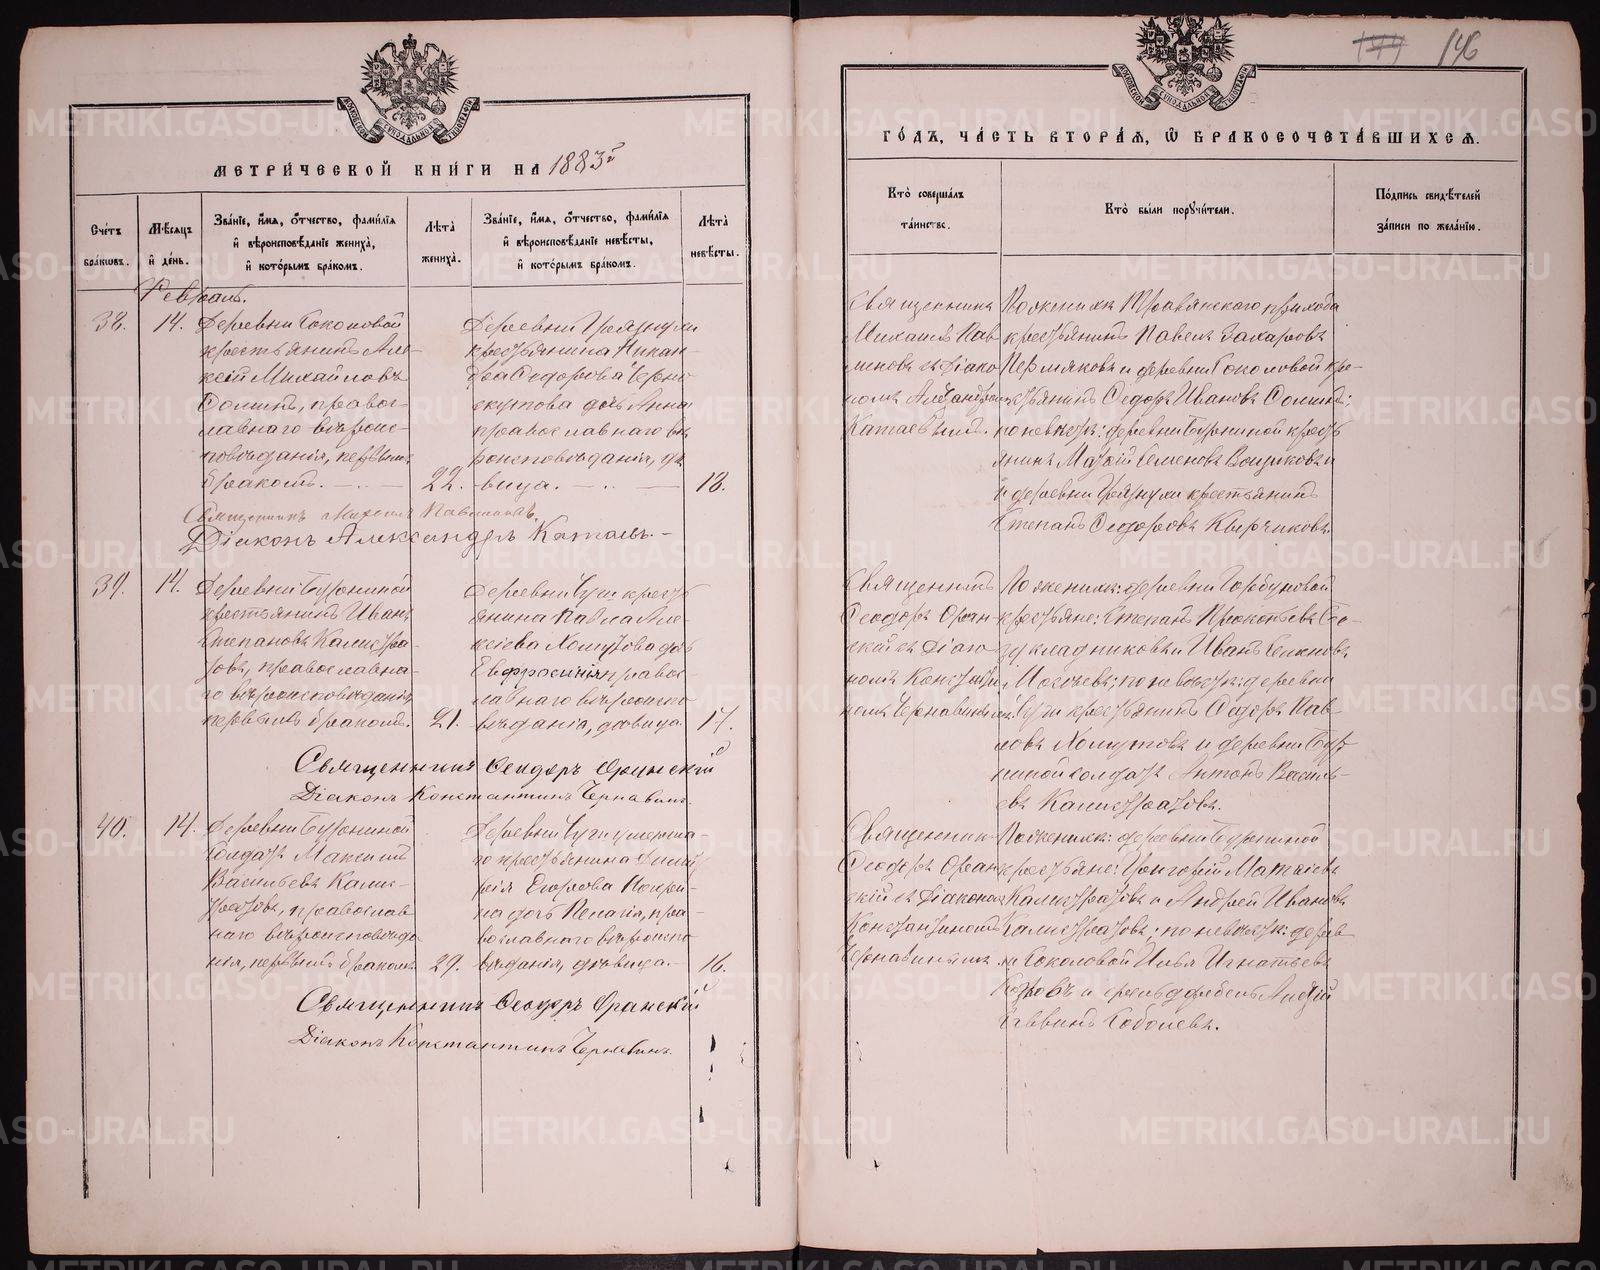 МЕТРИ́ЧЕСКОЙ КНИ́ГИ НА 1883 й
Сче́тъ бра́ковъ.
Мѣ́сяцъ и҆ де́нь.
Зва́нїе, и҆́мя, ѻ҆́тчество, фами́лїя и҆ вѣроисповѣ́данїе жениха̀, и҆ кото́рымъ бра́комъ.
Лѣ́та жениха̀.
Зва́нїе, и҆́мя, ѻ҆́тчество, фами́лїя и҆ вѣроисповѣ́данїе невѣ́сты, и҆ кото́рымъ бра́комъ.
Лѣ́та невѣ́сты.
Февраль.
38.
14.
Деревни Соколовой
крестьянинъ Але-
ксій Михайловъ
Соминъ, правос-
лавнаго вѣроис-
повѣданія, первымъ
бракомъ.
22.
Деревни Грязнухи
крестьянина Никан-
дра Ѳедорова Черно
скутова дочь Анна
православнаго вѣ
роисповѣданія, дѣ
вица.
18.
Священникъ Михаилъ Павлиновъ.
Діаконъ Александръ Катаевъ.
39.
14.
Деревни Бурниной
крестьянинъ Иванъ
Степановъ Калистра-
товъ, православна-
го вѣроисповѣданія,
первымъ бракомъ.
21.
Деревни крест
янина Павла Але-
ксіева Хомутова дочь
Евфросинія правос-
лавнаго вѣроиспо
вѣданія, дѣвица.
17.
Священникъ Ѳеодоръ Оранскій
Діаконъ Константинъ Чернавинъ.
40.
14.
Деревни Бурниной
Солдатъ Максимъ
Васильевъ Калис-
тратовъ, православ
наго вѣроисповѣда
нія, первымъ бракомъ
29.
Деревни умерша-
го крестьянина Дими
трія Егорова
на дочь Пелагія, пра-
вославнаго вѣроиспо
вѣданія, дѣвица.
16.
Священникъ Ѳеодоръ Оранскій
Діаконъ Константинъ Чернавинъ.
144 146
ГО́ДЪ, ЧА́СТЬ ВТОРА́Я, Ѽ БРАКОСОЧЕТА́ВШИХСЯ.
Кто̀ соверша́лъ та́инство.
Кто̀ бы́ли порꙋчи́тели.
По́дпись свидѣ́телей за́писи по жела́нїю.
Священникъ
Михаилъ Пав
линовъ съ Діако
номъ Александромъ
Катаевымъ.
По женихѣ Травянскаго прихода
крестьянинъ Павелъ Захаровъ
Пермяковъ и деревни Соколовой кре-
стьянинъ Ѳедоръ Ивановъ Соминъ;
по невѣстѣ: деревни Бурниной крест
янинъ Матѳій Семеновъ
и деревни Грязнухи крестьянинъ
Степанъ Ѳедоровъ Кырчиковъ.
Священникъ
Ѳеодоръ Оран-
скій съ Діако-
номъ Константи
номъ Чернавинымъ.
По женихѣ: деревни Горбуновой
крестьяне: Степанъ Прокопьевъ
и Иванъ
по невѣстѣ: деревни
крестьянинъ Ѳедоръ Пав-
ловъ Хомутовъ и деревни Бур-
ниной солдатъ Антонъ Василь-
евъ Калистратовъ.
Священникъ
Ѳеодоръ Оран
скій съ Діакономъ
Константиномъ
Чернавинымъ.
По женихѣ: деревни Бурниной
крестьяне: Григорій Матвіевъ
Калистратовъ и Андрей Ивановъ
Калистратовъ; по невѣстѣ: дерев
ни Соколовой Илья Игнатьевъ
и Алексій
Саввинъ Соболевъ.
METRIKI.GASO-URAL.RU